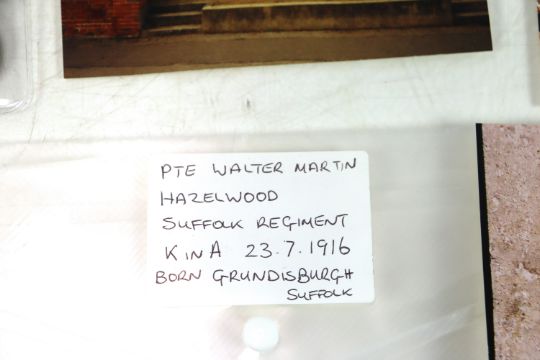 PTE WALTER MARTIN
HAZELWOOD
SUFFOLK REGIMENT
K IN A 23.7.1916
BORN GRUNDISBURGH
SUFFOLK